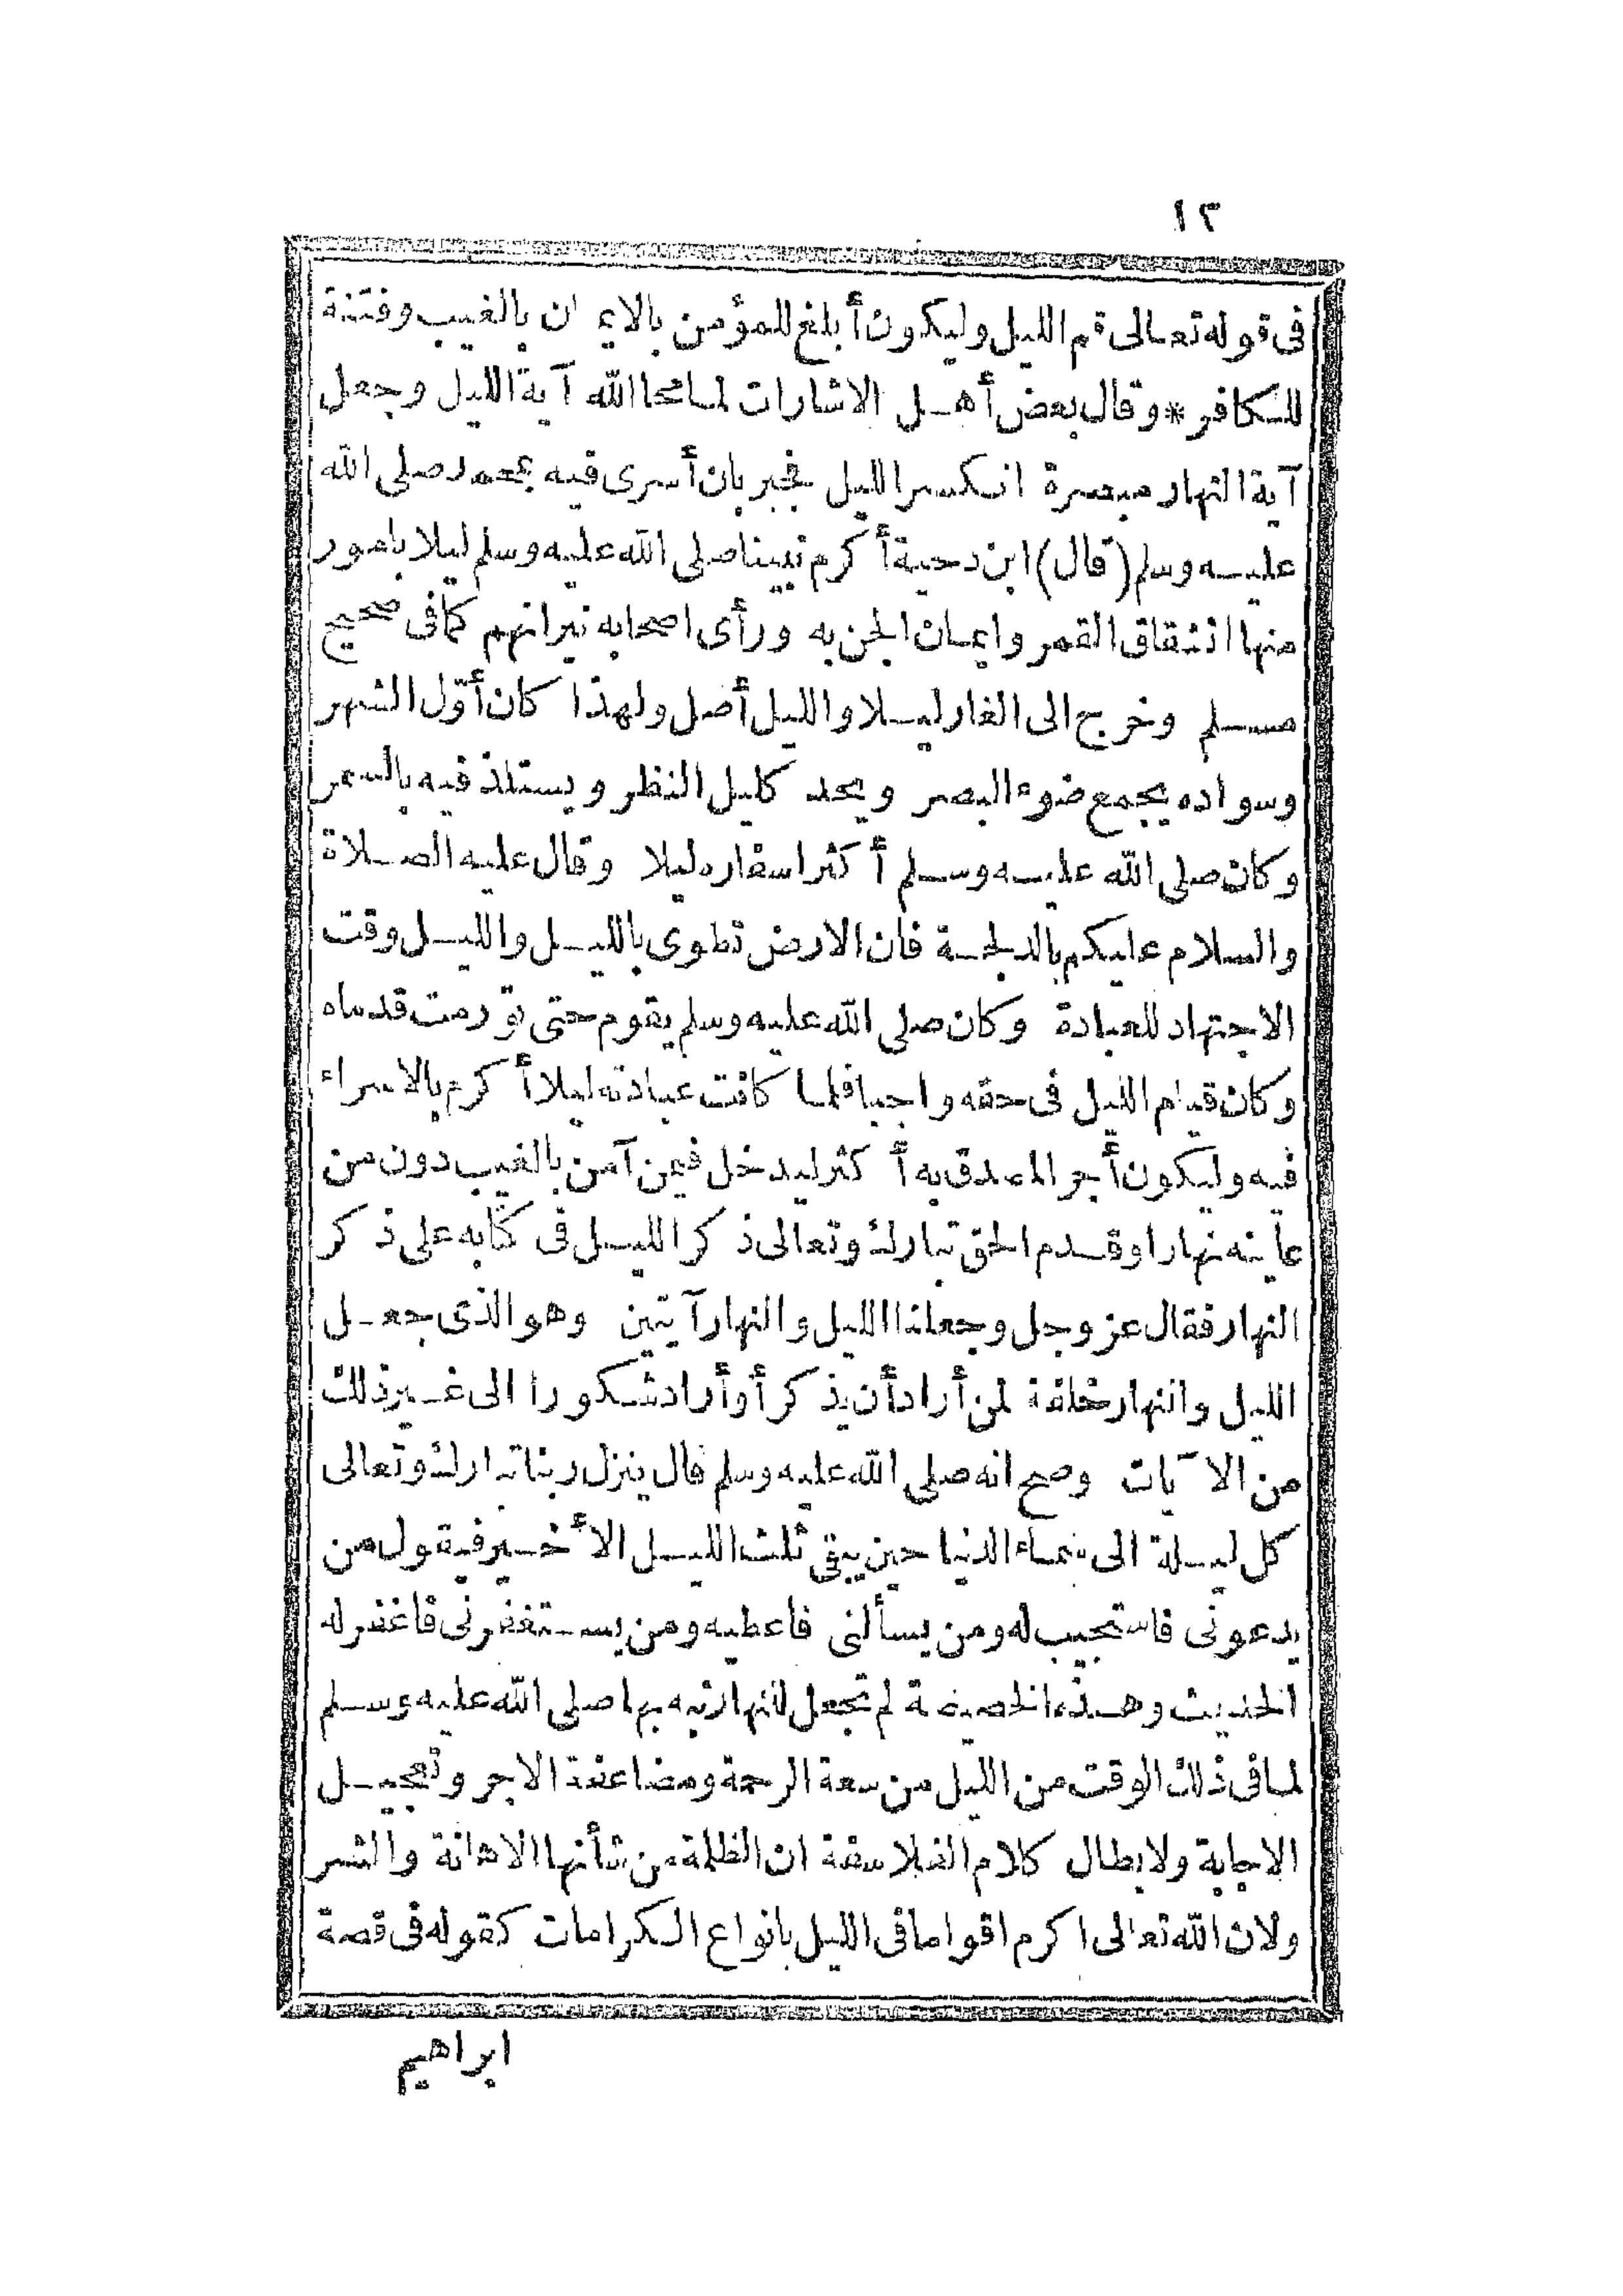 ١٢
فى قوله تعالى قم الليل وليكون أبلغ للمؤمن بالايمان بالغيب وفتنة
للكافر * وقال بعض أهل الاشارات لما محا الله آية الليل وجعل
آية النهار مبصرة انكسر الليل فجبر بان أسرى فيه بمحمد صلى الله
عليه وسلم (قال) ابن دحية أكرم نبينا صلى الله عليه وسلم ليلا بامور
منها انشقاق القمر وايمان الجن به ورأى اصحابه نيرانهم كما فى صحيح
مسلم وخرج الى الغار ليلا والليل أصل ولهذا كان أوّل الشهر
وسواده يجمع ضوء البصر ويحد كليل النظر ويستلذ فيه بالسمر
وكان صلى الله عليه وسلم أكثر اسفاره ليلا وقال عليه الصلاة
والسلام عليكم بالدلجة فان الارض تطوى بالليل والليل وقت
الاجتهاد للعبادة وكان صلى الله عليه وسلم يقوم حتى تورمت قدماه
وكان قيام الليل فى حقه واجبا فلما كانت عبادته ليلا أكرم بالاسراء
فيه وليكون أجر المصدق به أكثر ليدخل فيمن آمن بالغيب دون من
عاينه نهارا وقدم الحق تبارك وتعالى ذكر الليل فى كتابه على ذكر
النهار فقال عز وجل وجعلنا الليل والنهار آيتين وهو الذى جعل
الليل والنهار خلفة لمن أراد أن يذكر أو أراد شكورا الى غير ذلك
من الآيات وصح انه صلى الله عليه وسلم قال ينزل ربنا تبارك وتعالى
كل ليلة الى سماء الدنيا حين يبقى ثلث الليل الأخير فيقول من
يدعونى فاستجيب له ومن يسألنى فاعطيه ومن يستغفرنى فاغفر له
الحديث وهذه الخصيصة لم تجعل للنهار نبه بها صلى الله عليه وسلم
لما فى ذلك الوقت من الليل من سعة الرحمة ومضاعفة الاجر وتعجيل
الاجابة ولابطال كلام الفلاسفة ان الظلمة من شأنها الاهانة والشر
ولان الله تعالى اكرم اقواما فى الليل بانواع الكرامات كقوله فى قصة
ابراهيم